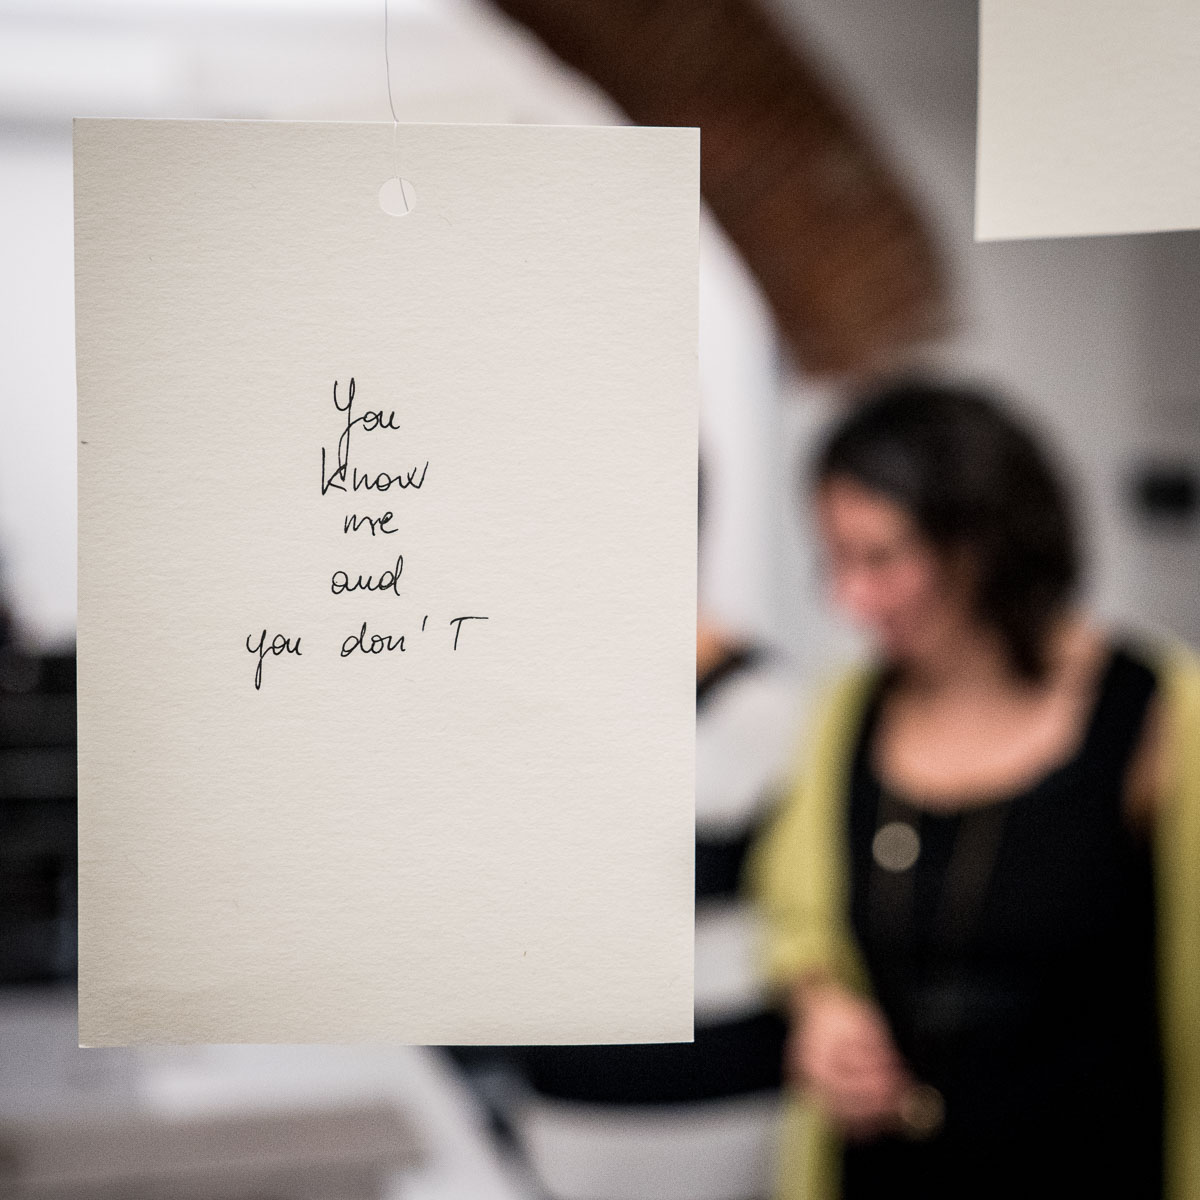 You
know
me
and
you don'T